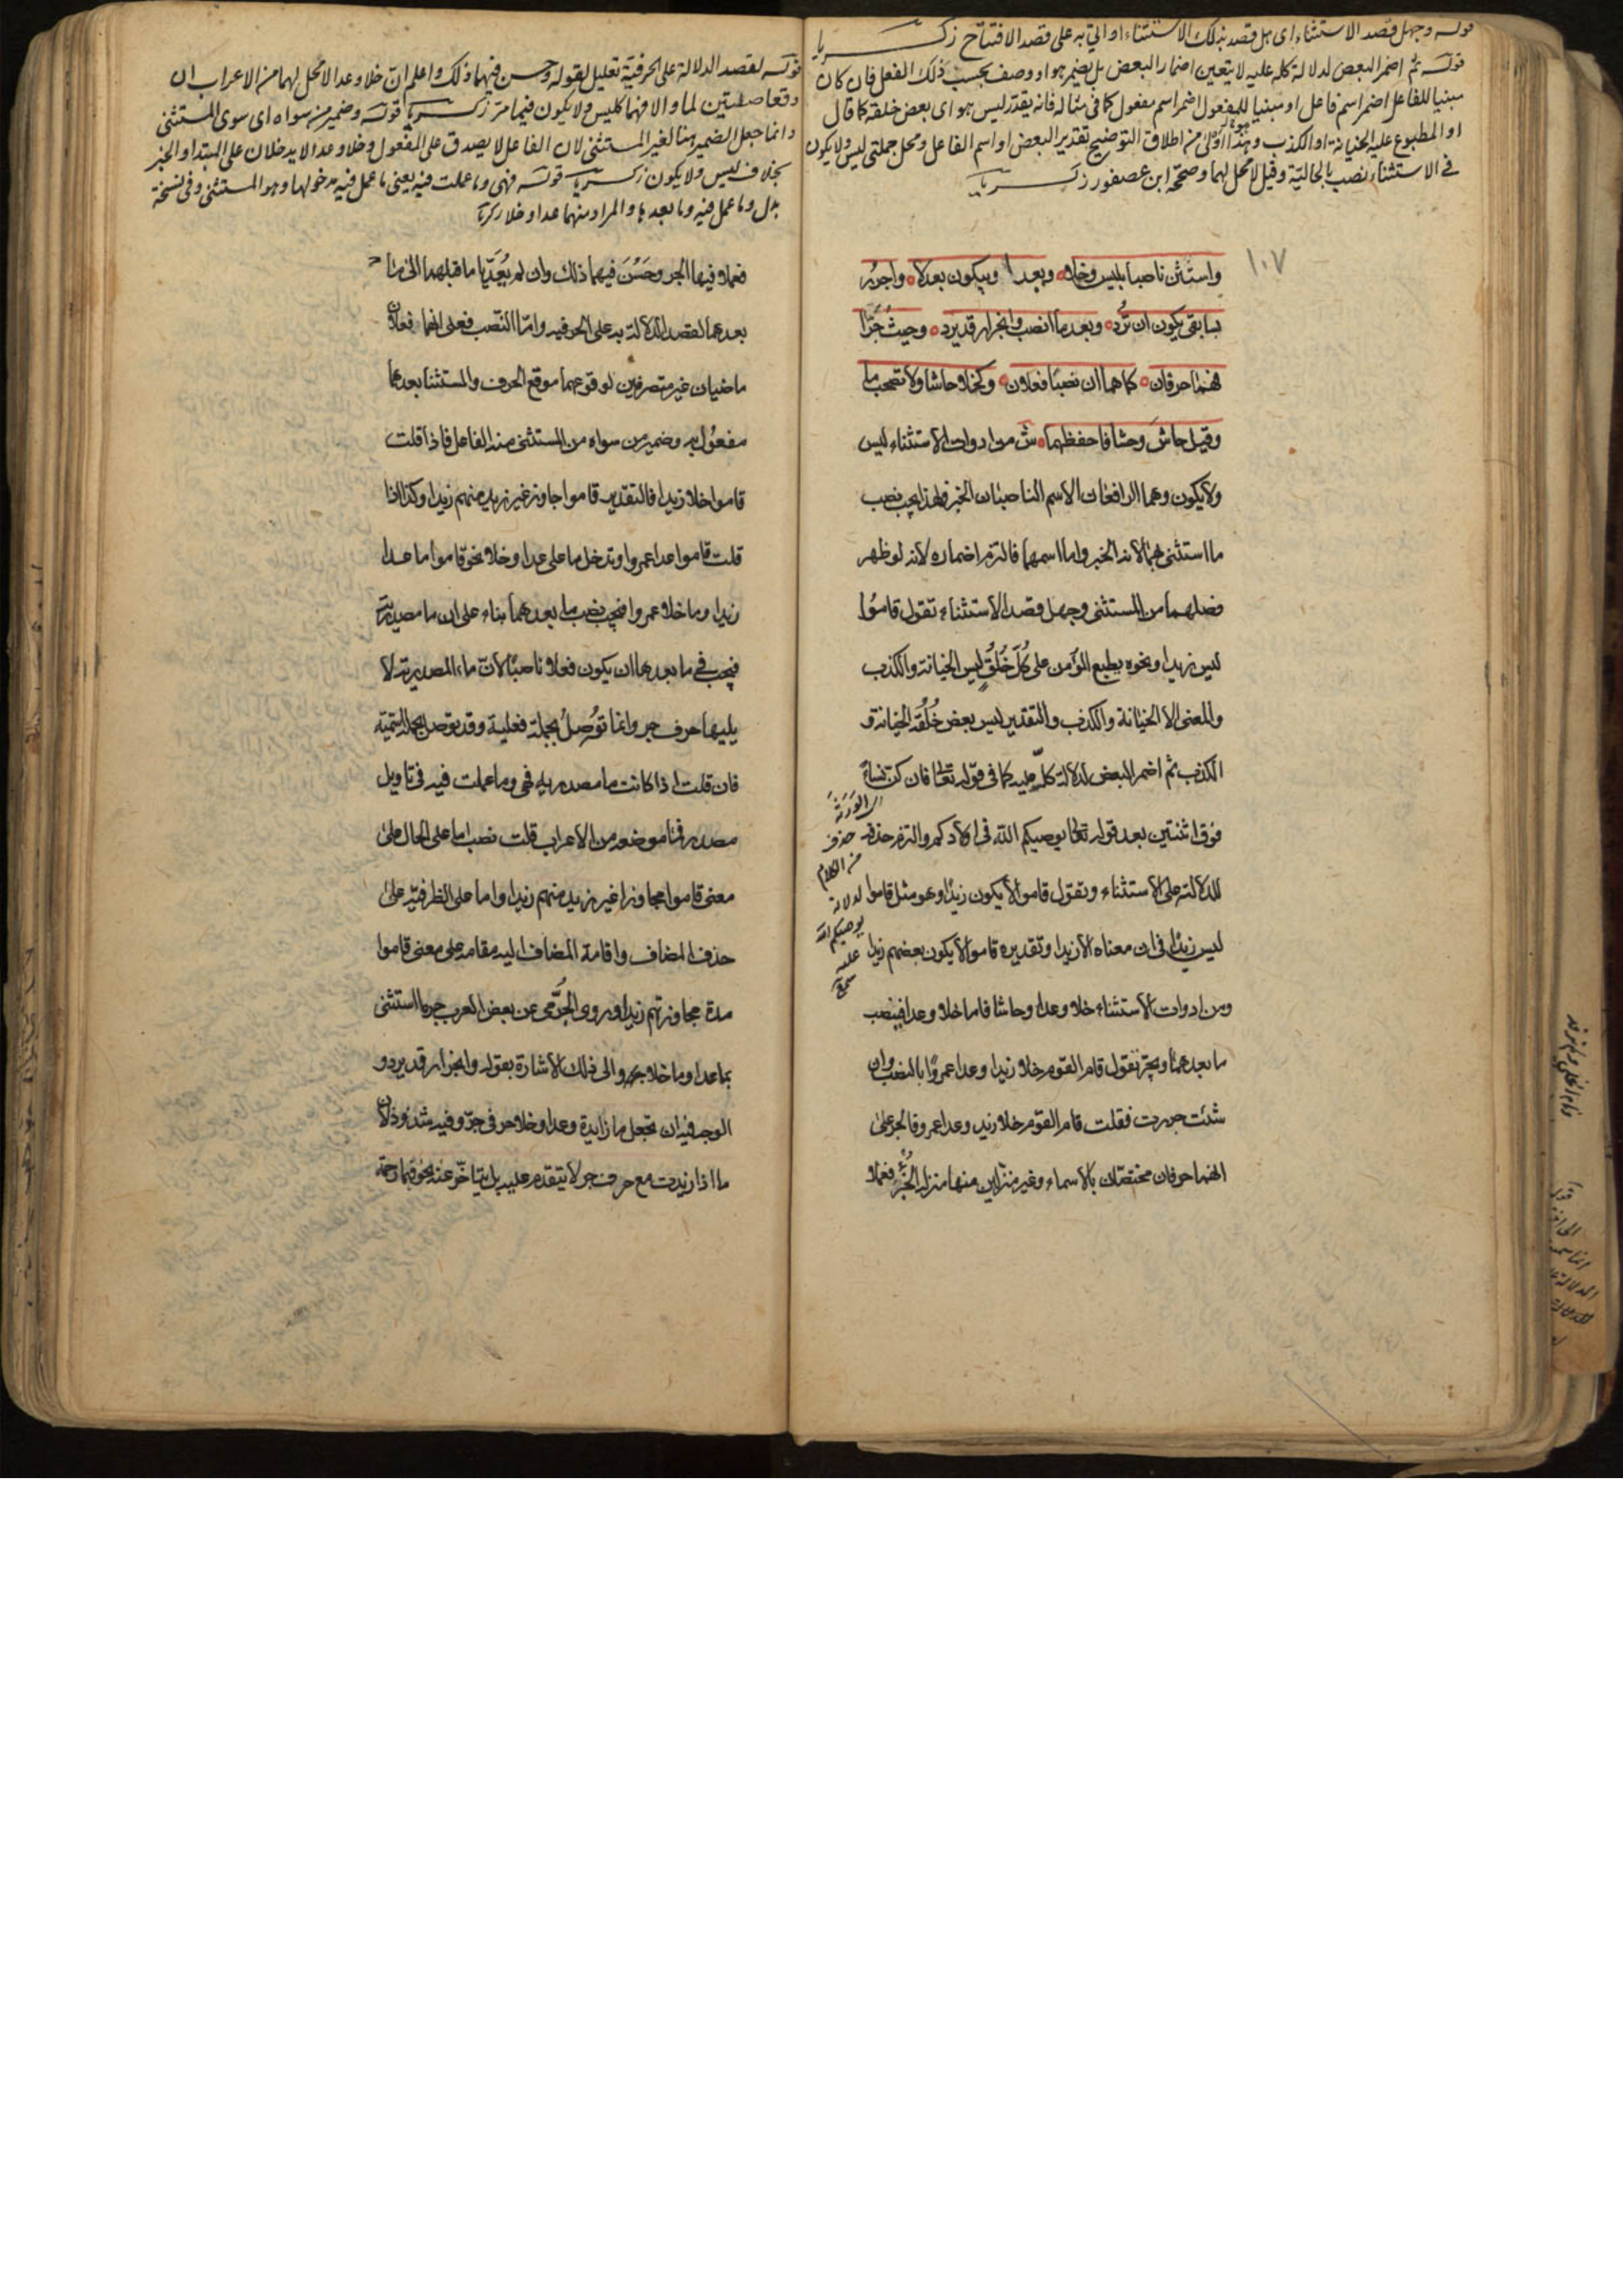 قوله وجهل قصد الاستثناء اى هل قصد بذلك الاستثناء او اتي به على قصد الافتتاح زكريا
قوله ثم اضمر البعض لدلالة كله عليه لا يتعين اضمار البعض بل يضمر هو او وصف بحسب ذلك الفعل فان كان
مبنيا للفاعل اضمر اسم فاعل او مبنيا للمفعول اضمر اسم مفعول كما فى مثاله فانه يقدر ليس هو اى بعض خلقه كما قال
او المطبوع عليه الخيانة او الكذب وهذا اولى من اطلاق التوضيح تقدير البعض او اسم الفاعل ومحل جملتى ليس ولا يكون
فى الاستثناء نصب بالحالية وقيل لا محل لهما وصححه ابن عصفور زكريا
١٠٧
واستثن ناصبا بليس وخلا وبعدا وبيكون بعد لا واجرر
بسابقى يكون ان ترد وبعد ما انصب وانجرار قد يرد وحيث جرا
فهما حرفان كما هما ان نصبا فعلان وكخلا حاشا ولا تصحب ما
وقيل حاش وحشا فاحفظهما ش من ادوات الاستثناء ليس
ولا يكون وهما الرافعان الاسم الناصبان الخبر فلهذا يجب نصب
ما استثنى بهما لانه الخبر واما اسمهما فالتزم اضماره لانه لو ظهر
فصلهما من المستثنى وجهل قصد الاستثناء تقول قاموا
ليس زيدا ونحوه يطبع المؤمن على كل خلق ليس الخيانة والكذب
والمعنى الا الخيانة والكذب والتقدير ليس بعض خلقه الخيانة و
الكذب ثم اضمر البعض لدلالة كل عليه كما فى قوله تعالى فان كن نساء
فوق اثنتين بعد قوله تعالى يوصيكم الله فى اولادكم والتزم حذفه
للدلالة على الاستثناء وتقول قاموا لا يكون زيدا وهو مثل قاموا
ليس زيدا فى ان معناه الا زيدا وتقديره قاموا لا يكون بعضهم زيدا
ومن ادوات الاستثناء خلا وعدا وحاشا فاما خلا وعدا فينصب
ما بعدهما ويجر تقول قام القوم خلا زيدا وعدا عمروا بالنصب وان
شئت جررت فقلت قام القوم خلا زيد وعدا عمرو فالجر على
انهما حرفان مختصان بالاسماء وغير منزلين منها منزلة الجزء فعملا
الورثة
حذف
من الكلام
لدلالة
يوصيكم الله
عليه
قوله لقصد الدلالة على الحرفية تعليل لقوله وحسن فيهما ذلك واعلم ان خلا وعدا لا محل لهما من الاعراب ان
وقعا صلتين لما والا فهما كليس ولا يكون فيما مر زكريا قوله وضمير من سواه اى سوى المستثنى
وانما جعل الضمير هنا لغير المستثنى لان الفاعل لا يصدق على المفعول وخلا وعدا لا يدخلان على المبتدا والخبر
بخلاف ليس ولا يكون زكريا قوله فهى وما عملت فيه يعنى ما عمل فيه مدخولها وهو المستثنى وفى نسخة
بدل وما عمل فيه وما بعدها والمراد منهما عدا وخلا زكريا
فعملا فيها الجر وحسن فيهما ذلك وان لم يعديا ما قبلهما الى ما
بعدهما لقصد الدلالة به على الحرفيه واما النصب فعلى انهما فعلان
ماضيان غير متصرفين لوقوعهما موقع الحرف والمستثنا بعدهما
مفعول به وضمير من سواه من المستثنى منه الفاعل فاذا قلت
قاموا خلا زيدا فالتقدير قاموا جاوز غير زيد منهم زيدا وكذا اذا
قلت قاموا عدا عمروا وتدخل ما على عدا وخلا نحو قاموا ما عدا
زيدا وما خلا عمروا فيجب نصب ما بعدهما بناء على ان ما مصدرية
فيجب فى ما بعدها ان يكون فعلا ناصبا لان ما المصدرية لا
يليها حرف جر وانما توصل بجملة فعلية وقد توصل بجملة اسمية
فان قلت اذا كانت ما مصدريه فهى وما عملت فيه فى تاويل
مصدر فما موضعه من الاعراب قلت نصب اما على الحال على
معنى قاموا مجاوزا غير زيد منهم زيدا واما على الظرفيه على
حذف المضاف واقامة المضاف اليه مقامه على معنى قاموا
مدة مجاوزتهم زيدا وروى الجرمى عن بعض العرب جر ما استثنى
بما عدا وما خلا والى ذلك الاشارة بقوله وانجرار قد يرد و
الوجه فيه ان تجعل ما زايدة وعدا وخلا حرفى جر وفيه شذوذ لان
ما اذا زيدت مع حرف جر لا يتقدم عليه بل يتاخر عنه نحو فبما رحمة